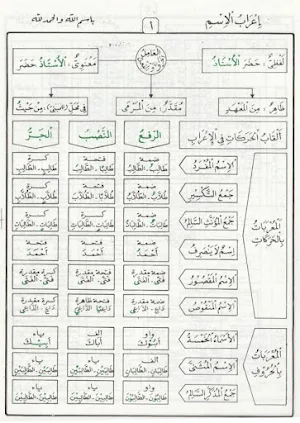 إعراب الاسم
١
باسم الله والحمد لله
لفظي: حضر الأستاذ
العامل
معنوي: الأستاذ حضر
ظاهر: من العهد
مقدر: من الرمى
في محل (المبني): من حيث
ألقاب الحركات في الإعراب
الرفع
النصب
الجر
المعربات بالحركات
الاسم المفرد
ضمة
فتحة
كسرة
طالب، الطالب
طالبا، الطالب
طالب، الطالب
جمع التكسير
ضمة
فتحة
كسرة
طلاب، الطلاب
طلابا، الطلاب
طلاب، الطلاب
جمع المؤنث السالم
ضمة
كسرة
كسرة
طالبات، الطالبات
طالبات، الطالبات
طالبات، الطالبات
اسم لا ينصرف
ضمة
فتحة
فتحة
أحمد
أحمد
أحمد
الاسم المقصور
ضمة مقدرة
فتحة مقدرة
كسرة مقدرة
فتى، الفتى
فتى، الفتى
فتى، الفتى
الاسم المنقوص
ضمة مقدرة
فتحة ظاهرة
كسرة مقدرة
داع، الداعي
داعيا، الداعي
داع، الداعي
المعربات بالحروف
الأسماء الخمسة
واو
الف
ياء
أبوك
أباك
أبيك
الاسم المثنى
الف
ياء
ياء
طالبان، الطالبان
طالبين، الطالبين
طالبين، الطالبين
جمع المذكر السالم
واو
ياء
ياء
طالبون، الطالبون
طالبين، الطالبين
طالبين، الطالبين